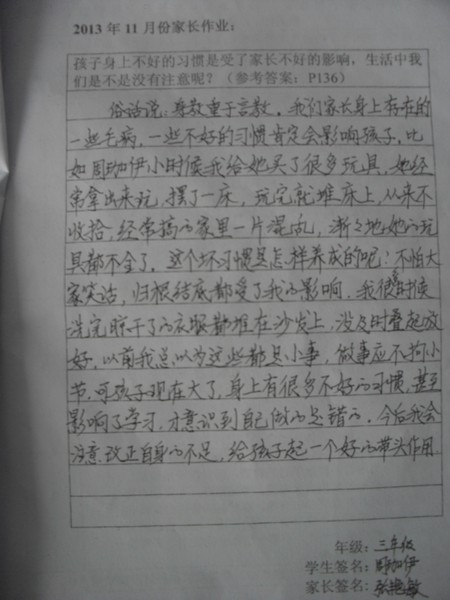 2013 年 11 月份家长作业：
孩子身上不好的习惯是受了家长不好的影响，生活中我
们是不是没有注意呢？（参考答案：P136）
俗话说：身教重于言教。我们家长身上存在的
一些毛病，一些不好的习惯肯定会影响孩子，比
如周珈伊小时候我给她买了很多玩具，她经
常拿出来玩，摆了一床，玩完就堆床上，从来不
收拾，经常搞的家里一片混乱，渐々地她的玩
具都不全了，这个坏习惯是怎样养成的呢？不怕大
家笑话，归根结底都受了我的影响，我很多时候
洗完晾干了的衣服都堆在沙发上，没及时叠起放
好，以前我总以为这些都是小事，做事应不拘小
节，可孩子现在大了，身上有很多不好的习惯，甚至
影响了学习，才意识到自己做的是错的，今后我会
注意改正自身的不足，给孩子起一个好的带头作用
年级：三年级
学生签名：周珈伊
家长签名：张艳敏